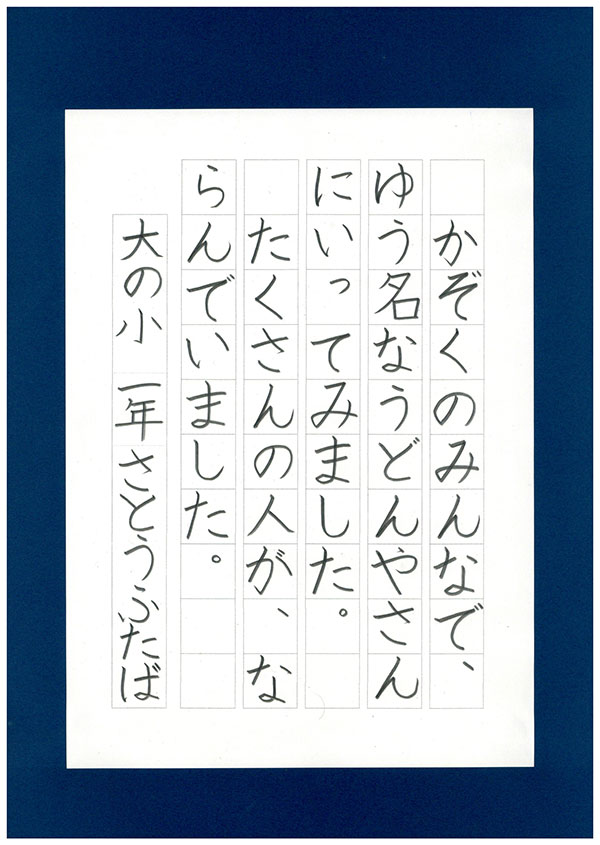 かぞくのみんなで、
ゆう名なうどんやさん
にいってみました。
　たくさんの人が、な
らんでいました。
大の小　一年さとうふたば